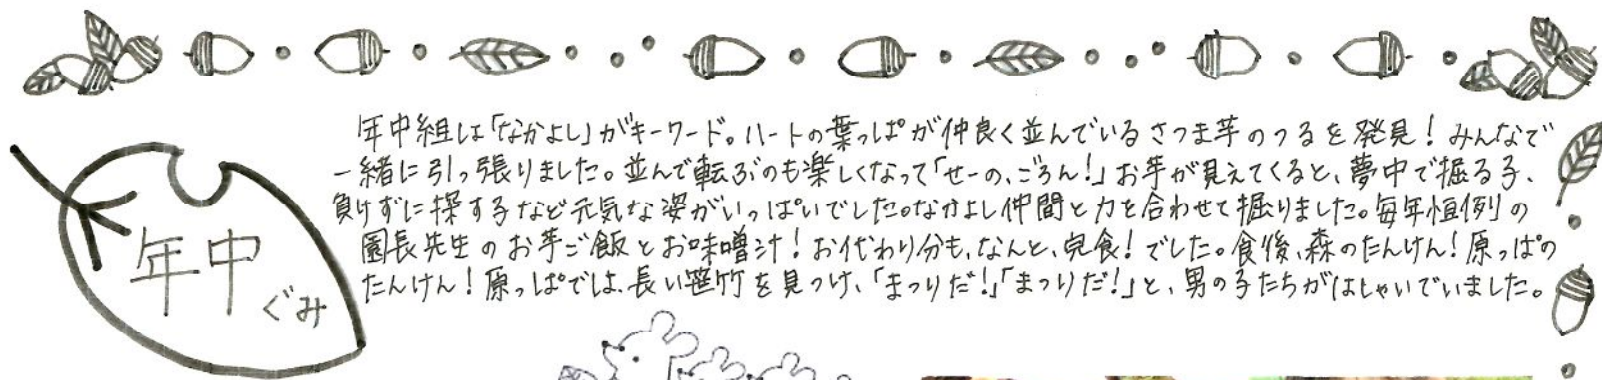 年中組は「なかよし」がキーワード。ハートの葉っぱが仲良く並んでいるさつま芋のつるを発見！みんなで
一緒に引っ張りました。並んで転ぶのも楽しくなって「せーの、ごろん！」お芋が見えてくると、夢中で掘る子、
負けずに探す子など元気な姿がいっぱいでした。なかよし仲間と力を合わせて掘りました。毎年恒例の
園長先生のお芋ご飯とお味噌汁！お代わり分も、なんと、完食！でした。食後、森のたんけん！原っぱの
たんけん！原っぱでは、長い笹竹を見つけ、「まつりだ！」「まつりだ！」と、男の子たちがはしゃいでいました。
年中
ぐみ